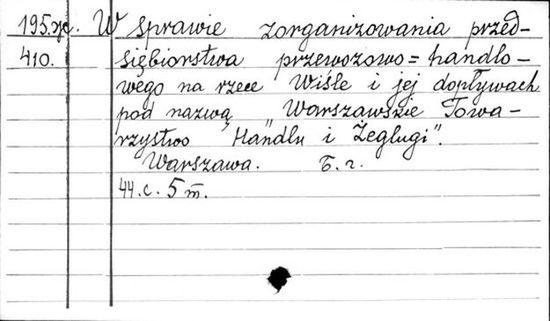 195.zc. W sprawie zorganizowania przed-
410. siębiorstwa przewozowo=handlo-
wego na rzece Wiśle i jej dopływach
pod nazwą „Warszawskie Towa-
rzystwo "Handlu i Żeglugi".
Warszawa. Б. г.
44. с. 5 m.